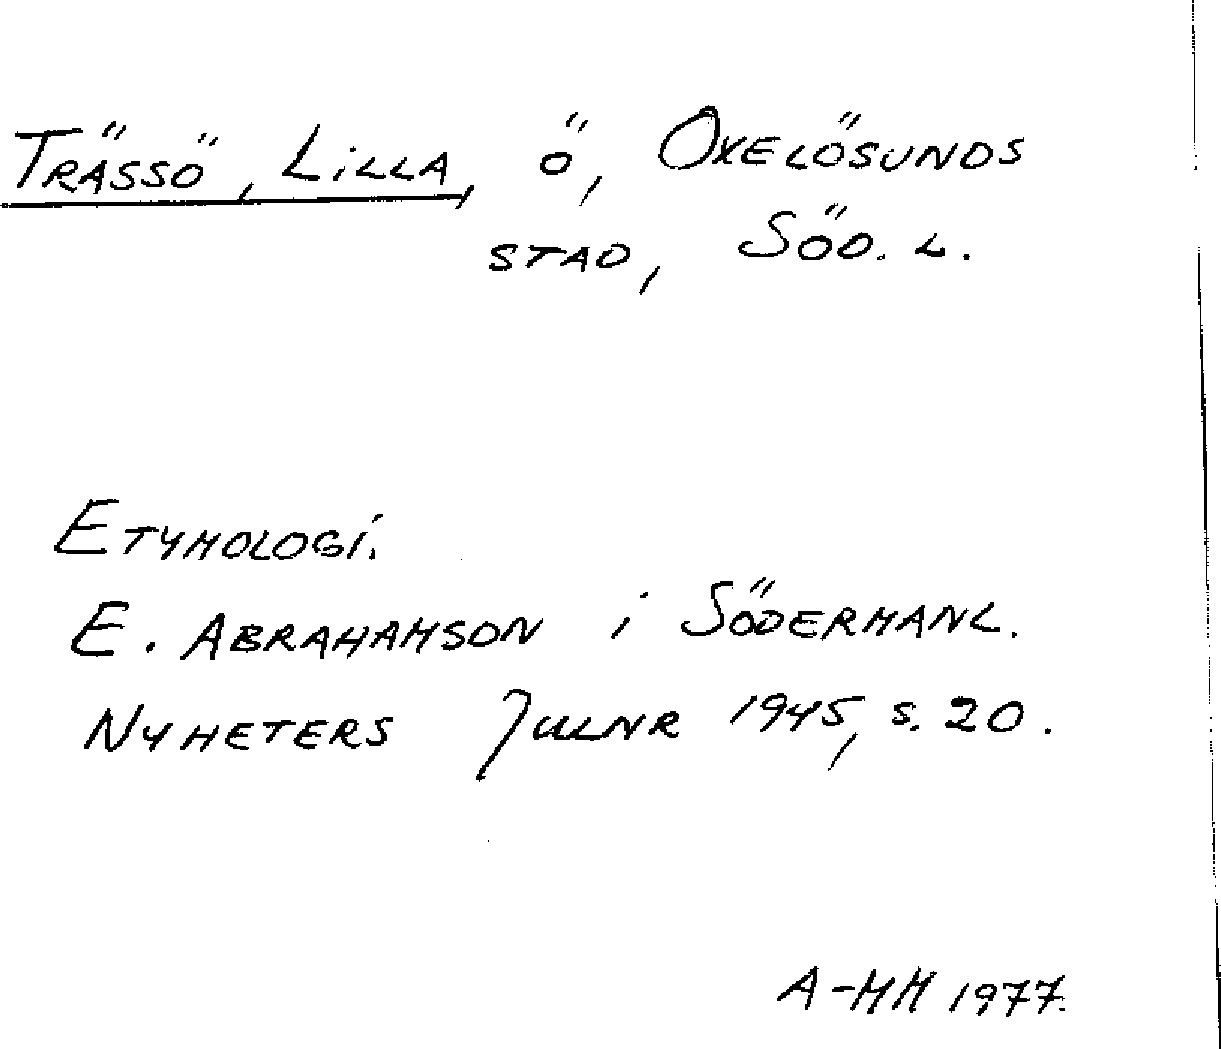 TRÄSSÖ, LILLA, Ö, OXELÖSUNDS
STAD, SÖD. L.
ETYMOLOGI.
E. ABRAHAMSON i SÖDERMANL.
NYHETERS JULNR 1945, S. 20.
A-MM 1977.